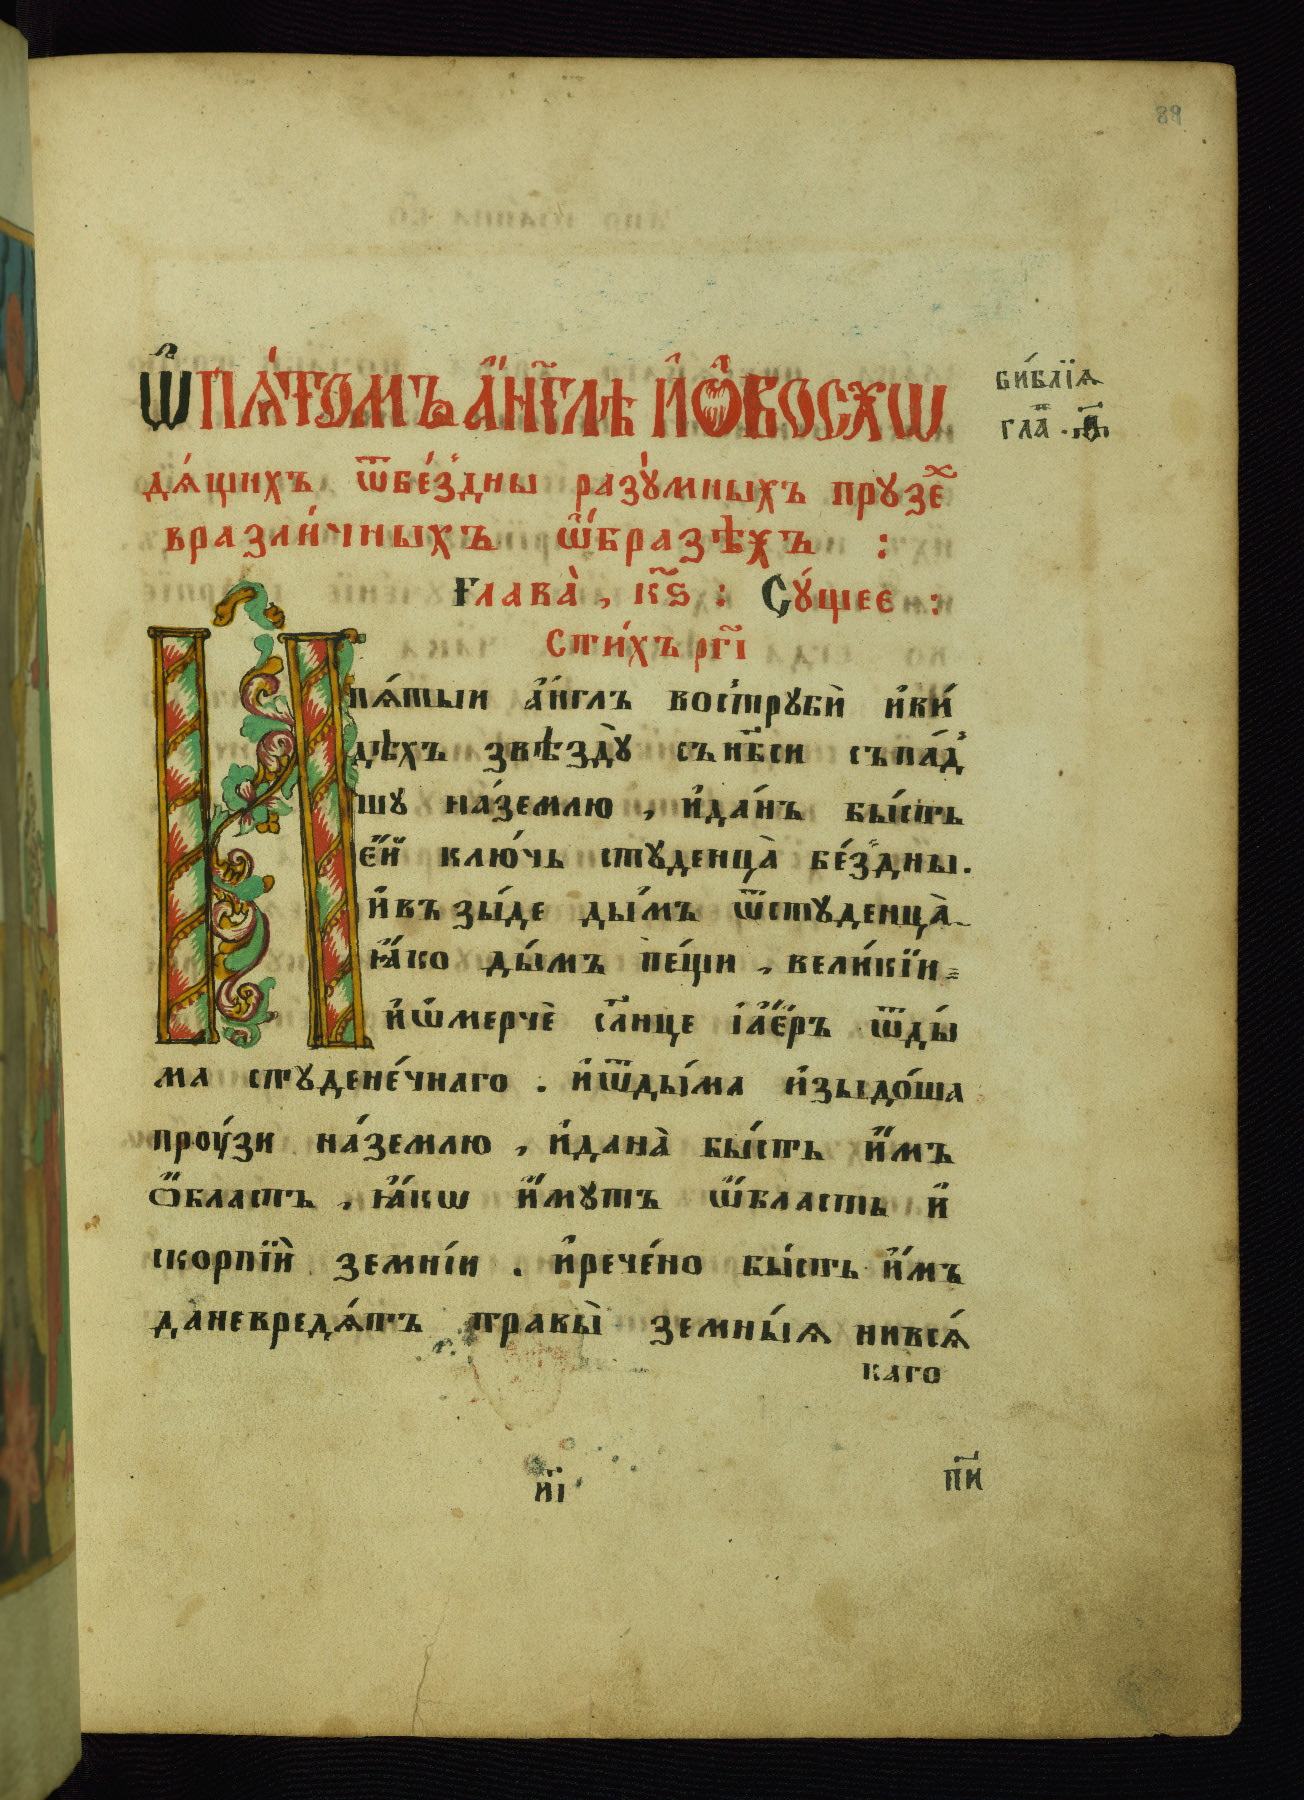 89
Ѿ ПѦ́ТОМЪ А҆́НГ҃ЛѢ И҆ Ѡ҆ ВОСХѠ
дѧ́щихъ ѿбе́здны разꙋ́мныхъ прузе҃х
вразли́чныхъ ѡ҆́бразѣхъ :
Глава̀, к҃ѕ : Сꙋ́щее :
Стихъ рг҃і
Библїѧ
гла҃ .
И пѧ́тыи а҆́нглъ вострꙋбѝ и҆ ви́
дѣхъ звѣздꙋ̀ съ нб҃си съпа́д
шꙋ на́землю , и҆ да́нъ бы́сть
е҆́й клю́чь стꙋденца̀ бе́здны.
и҆ въ зы́де ды́мъ ѿстꙋденца̀
ꙗ҆́ко ды́мъ пе́щи , вели́кїи
и҆ ѡ҆мерчѐ сл҃нце і а҆е́ръ ѿды́
ма стꙋдене́чнаго . и҆ ѿды́ма и҆зыдо́ша
проу́зи на́землю , и҆ дана̀ бы́сть и҆́мъ
ѻ҆́бласть , ꙗ҆́кѡ и҆́мꙋтъ ѡ҆́бласть и҆
скорпїѝ земні́и . и҆ рече́но бы́сть и҆́мъ
даневредѧ́тъ травы̀ земны́ѧ нивсѧ́
каго
и҃і
п҃и